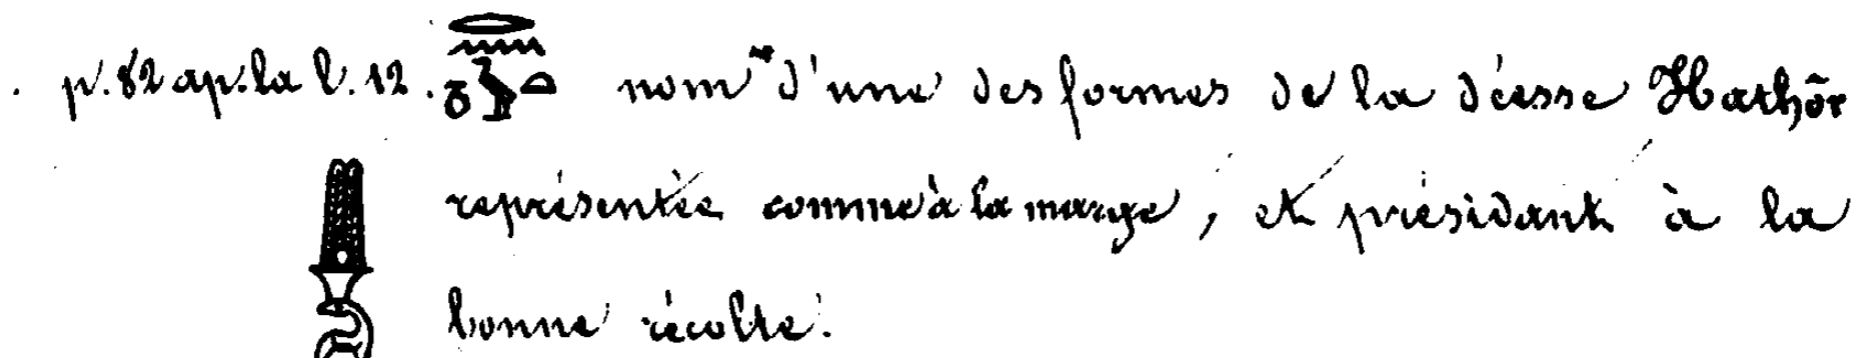 p. 82 ap. la l. 12. nom d'une des formes de la déesse Hathōr
représentée comme à la marge, et présidant à la
bonne récolte.